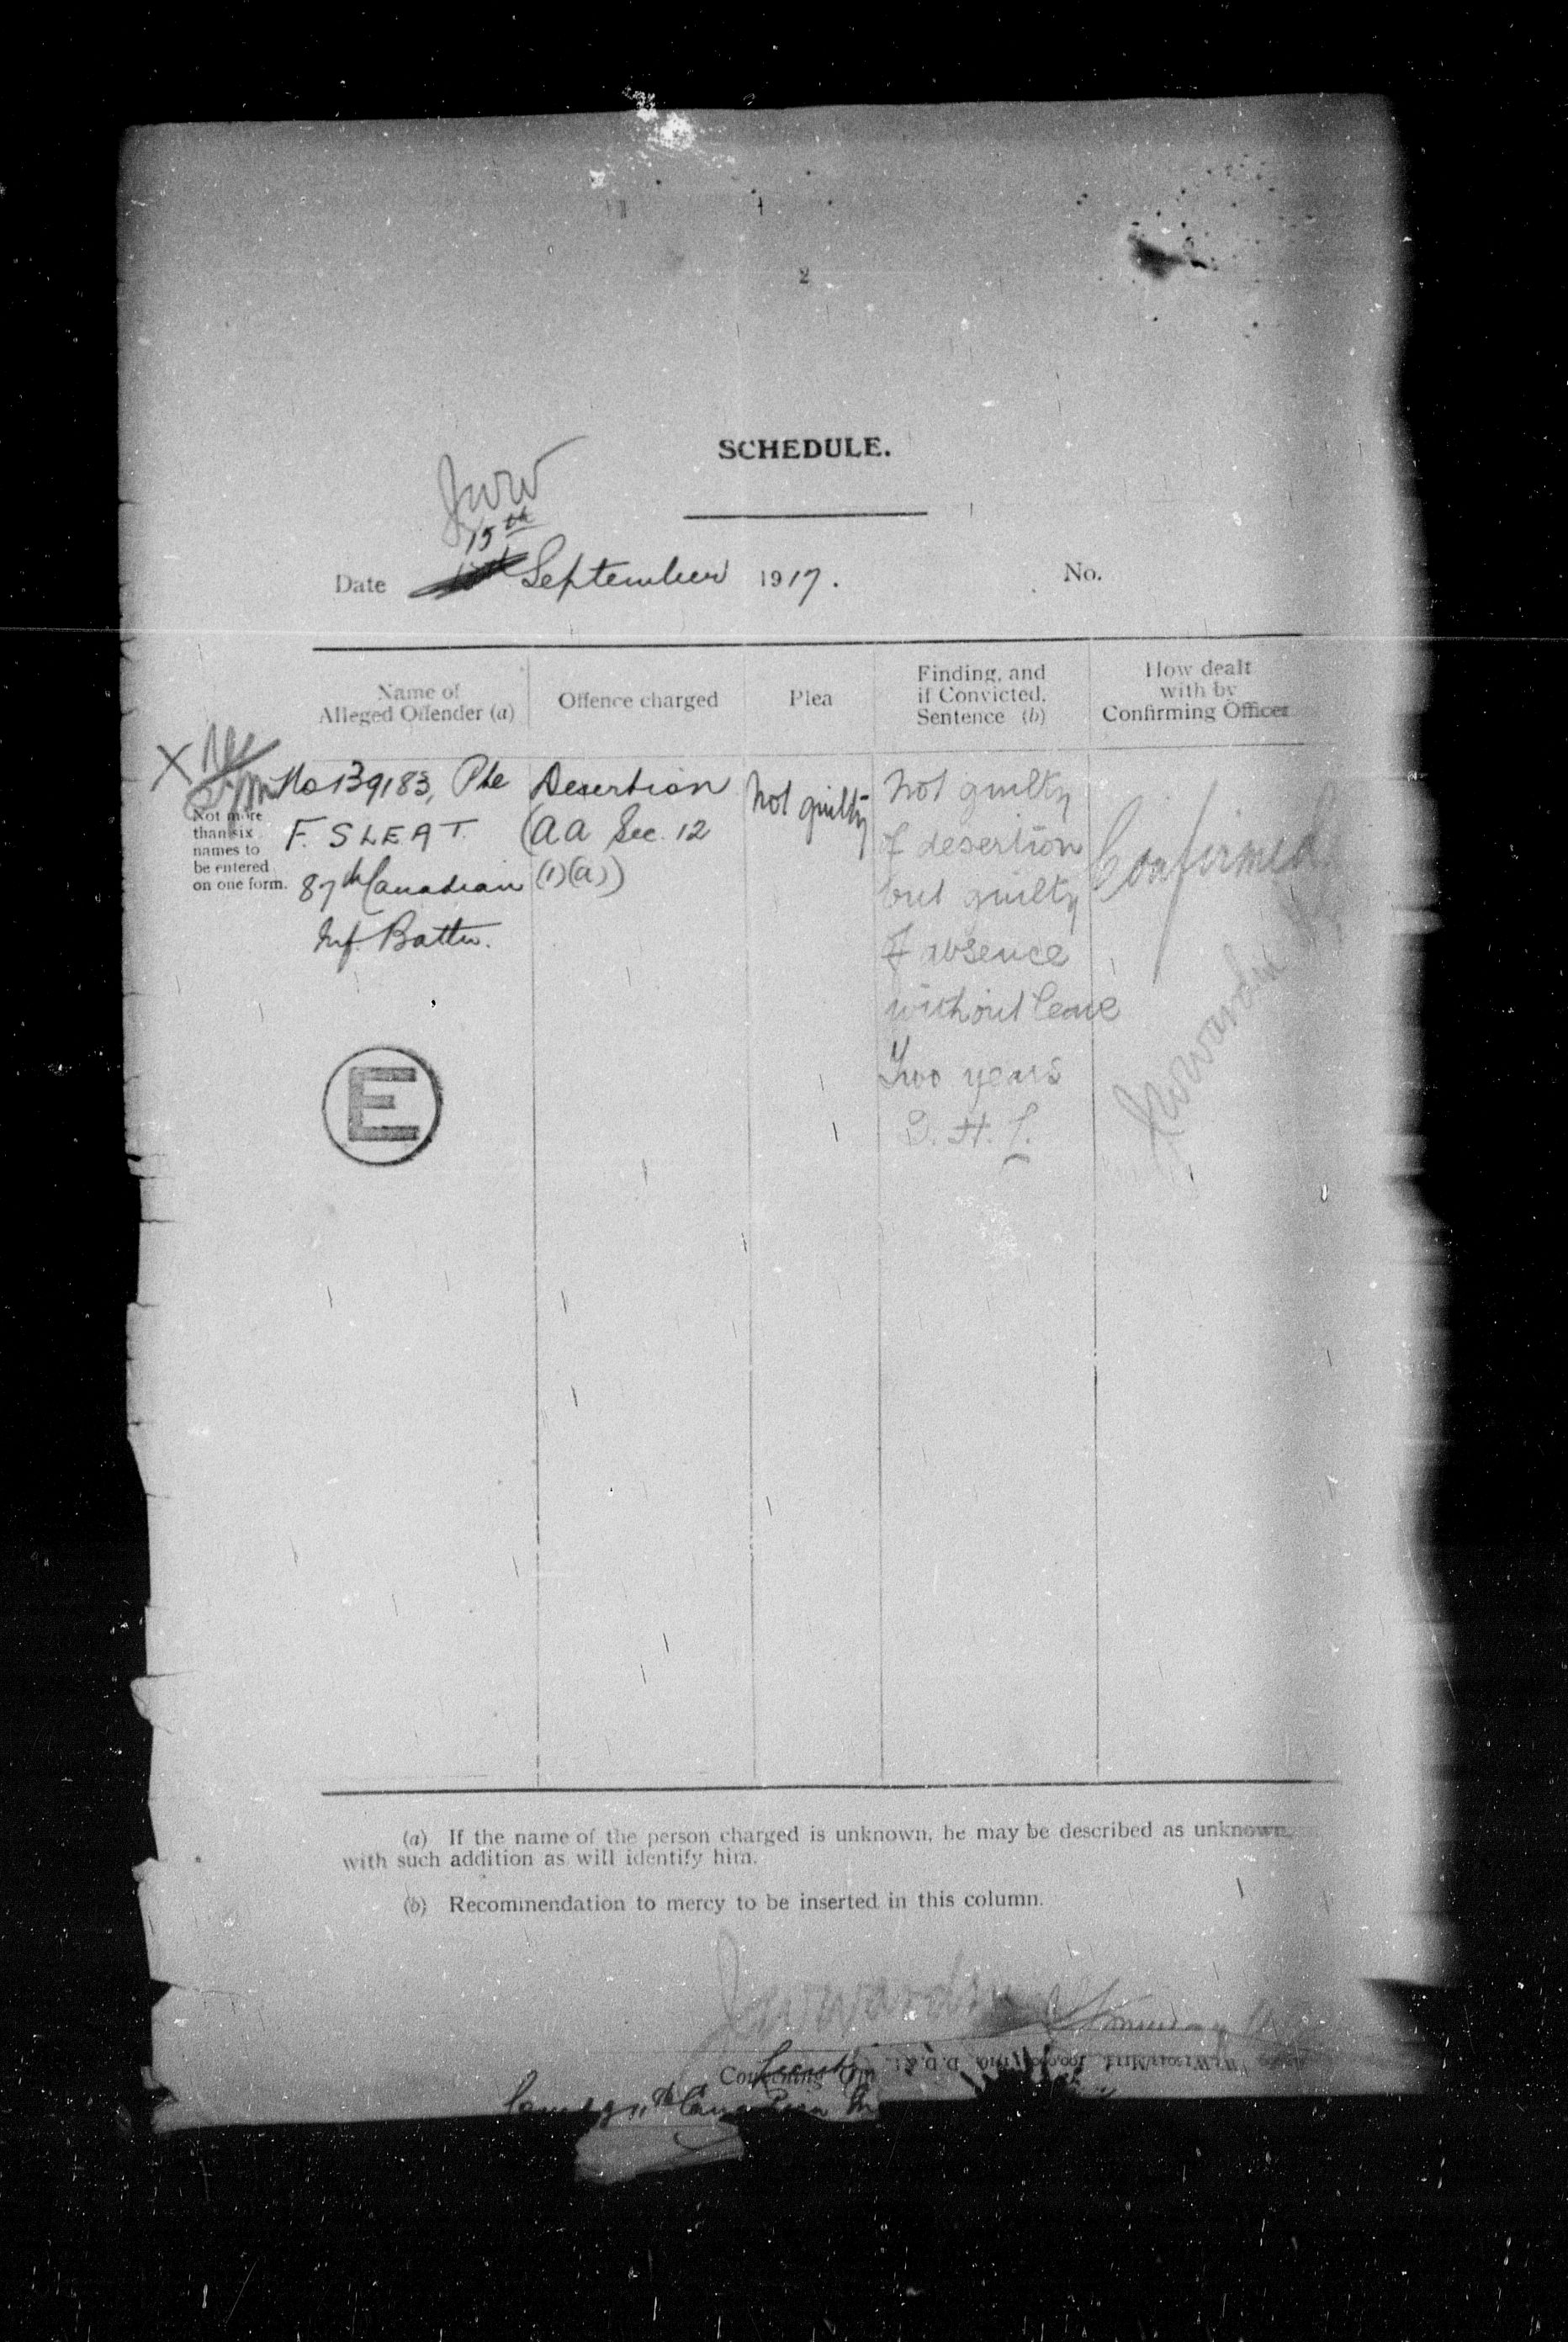 2
SCHEDULE.
15th
Date September 1917. No.
Name of Alleged Offender (a)
Offence charged
Plea
Finding, and if Convicted, Sentence (b)
How dealt with by Confirming Officer
Not more
than six
names to
be entered
on one form.
No 139183, Pte
F. SLEAT.
87th Canadian
Inf. Battn.
Desertion
(AA Sec. 12
(1)(a))
Not guilty
Not guilty
of desertion
but guilty
of absence
without leave
Two years
I. H. L.
Confirmed
E
(a) If the name of the person charged is unknown, he may be described as unknown,
with such addition as will identify him.
(b) Recommendation to mercy to be inserted in this column.
Convening